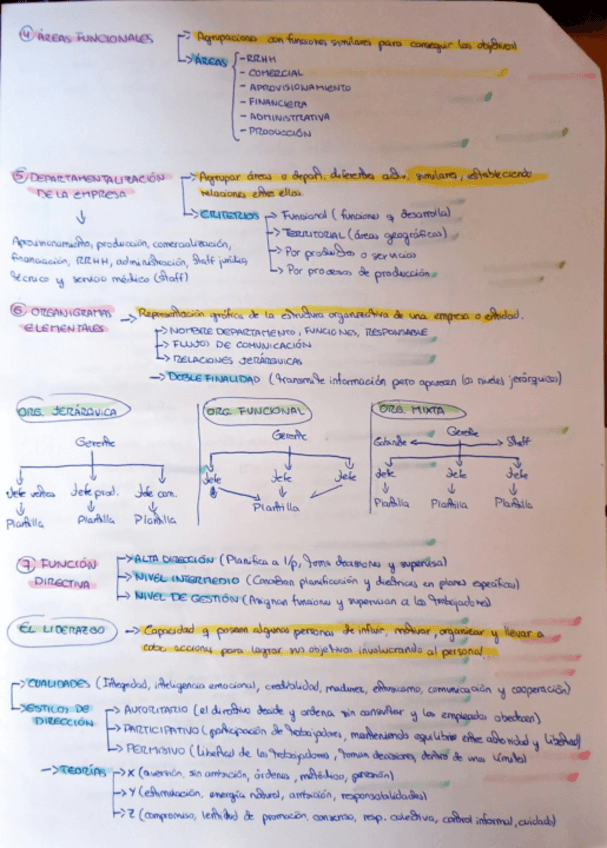 ④ ÁREAS FUNCIONALES → Agrupaciones con funciones similares para conseguir los objetivos
→ ÁREAS
- RRHH
- COMERCIAL
- APROVISIONAMIENTO
- FINANCIERA
- ADMINISTRATIVA
- PRODUCCIÓN
⑤ DEPARTAMENTALIZACIÓN → Agrupar áreas o depart. diferentes activ. similares, estableciendo
DE LA EMPRESA relaciones entre ellos.
→ CRITERIOS → Funcional (funciones q desarrolla)
→ TERRITORIAL (áreas geográficas)
→ Por productos o servicios
→ Por procesos de producción
Aprovisionamiento, producción, comercialización,
financiación, RRHH, administración, staff jurídico,
técnico y servicio médico (staff)
⑥ ORGANIGRAMAS → Representación gráfica de la estructura organizativa de una empresa o entidad.
ELEMENTALES
→ NOMBRE DEPARTAMENTO, FUNCIONES, RESPONSABLE
→ FLUJOS DE COMUNICACIÓN
→ RELACIONES JERÁRQUICAS
→ DOBLE FINALIDAD (transmite información pero aparecen los niveles jerárquicos)
ORG. JERÁRQUICA
Gerente
Jefe ventas Jefe prod. Jefe com.
Plantilla Plantilla Plantilla
ORG. FUNCIONAL
Gerente
Jefe Jefe Jefe
Plantilla
ORG. MIXTA
Gerente
Staff
Jefe Jefe Jefe
Plantilla Plantilla Plantilla
⑦ FUNCIÓN → ALTA DIRECCIÓN (Planifica a l/p, toma decisiones y supervisa)
DIRECTIVA → NIVEL INTERMEDIO (Concretan planificación y directrices en planes específicos)
→ NIVEL DE GESTIÓN (Asignan funciones y supervisan a los trabajadores)
EL LIDERAZGO → Capacidad q poseen algunas personas de influir, motivar, organizar y llevar a
cabo acciones para lograr sus objetivos involucrando al personal.
→ CUALIDADES (Integridad, inteligencia emocional, credibilidad, madurez, entusiasmo, comunicación y cooperación)
→ ESTILOS DE DIRECCIÓN
→ AUTORITARIO (el directivo decide y ordena sin consultar y los empleados obedecen)
→ PARTICIPATIVO (participación de trabajadores, manteniendo equilibrio entre autoridad y libertad)
→ PERMISIVO (libertad de los trabajadores, toman decisiones, dentro de unos límites)
→ TEORÍAS → X (aversión, sin ambición, órdenes, metódico,
→ Y (estimulación, energía natural, ambición, responsabilidades)
→ Z (compromiso, lentitud de promoción, consenso, resp. colectiva, control informal, cuidado)